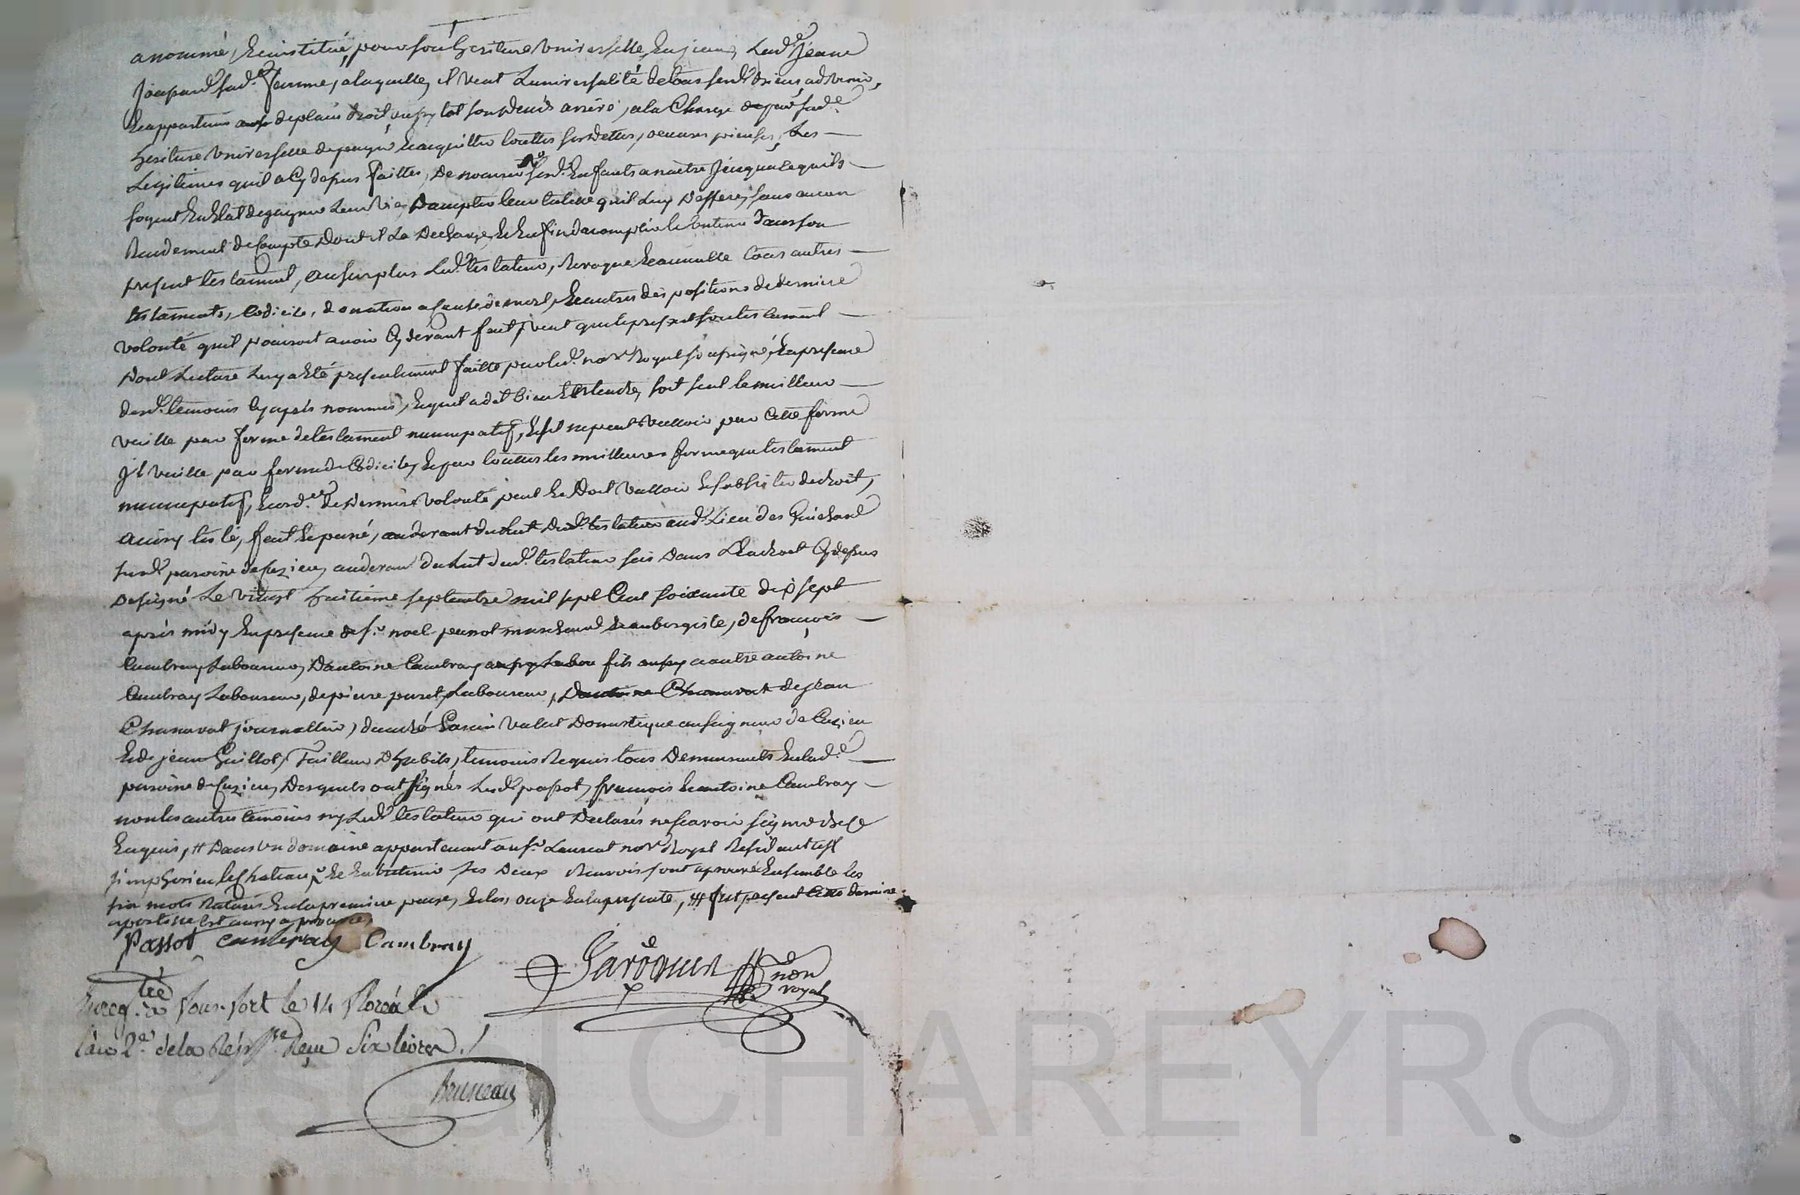 a nommé, & institué, pour son heritiere universelle, Ludte Jeanne
sad.e femme, a laquelle, il veut Luniversalité de tous sesd. biens advenir,
& appartenir de plain droit sytot son deces arrivé, a la Charge par sad.e
heritiere universelle de payer & acquitter touttes ses dettes, oeuvres pieuses, Les
Legitimes quil a Cy depus faittes, De nourrir sesd. Enfants a naitre Jusqua ce quils
soyent En Etat de gagner Leur vie, Dacepter leur tutelle quil Luy Deffere, sans aucun
Rendement de Compte Dont il La Decharge, & Enfin dacomplir le Contenu Dans son
present testament, au surplus Led. testateur, Revoque & annulle tous autres
testaments, Codicile, donation a Cause de mort, & autres dispositions de derniere
volonté quil pouroit avoir Cy devant fait, veut que le present son testament
Dont Lecture Luy a Eté presentement faitte par led. no.re Royal soussigné, En presence
desd. temoins Cy apres nommés, & quil a dit bien Entendre, soit seul le meilleur
vaille par forme de testament nuncupatif, & sil ne peut valloir par Cette forme
Jl vaille par forme de Codicile, & par touttes les meilleures formes que testament
nuncupatif, & ord.ce de Derniere volonté peut & Doit valloir & subsister de droit,
ainsy testé, fait & passé, au devant du lit Dud. testateur aud. Lieu des Guichard
susd. paroisse de Cuzieu, au devant du lit dud. testateur sis Dans L'Endroit Cy depus
Designé Le vingt huitieme septembre mil sept Cent soixante dix sept
apres midy En presence de s.r noel passot marchand & aubergiste, de françois
Cambray Laboureur, Dantoine Cambray fils a autre antoine
Cambray Laboureur, de pierre Laboureur, Dantoine Chanavat de Jean
Chanavat journallier, dandré valet Domestique au seigneur de Cuzieu
& de jean Guillot, Tailleur D'habits, temoins Requis tous Demeurants En lad.e
paroisse de Cuzieu, Desquels ont signés Lesd. passot, françois & antoine Cambray
non les autres temoins ny Led. testateur qui ont Declarés ne scavoir signer de ce
Enquis, # Dans un domaine appartenant au s.r Laurent no.re Royal Resident
symphorien le Chateau, Les Deux Renvois sont aprouvés Ensemble les
six mots Raturés En la premiere pause, & les onze En la presente, ## Cette derniere
apostille Est aussy aprouvée
Passot Cambray Cambray
Garonin no.re royal
Enreg.tré a Sour-fort le 14 floreal
l'an 2.e de la Rép. Reçu Six livres
Bruneau
Pascal CHAREYRON